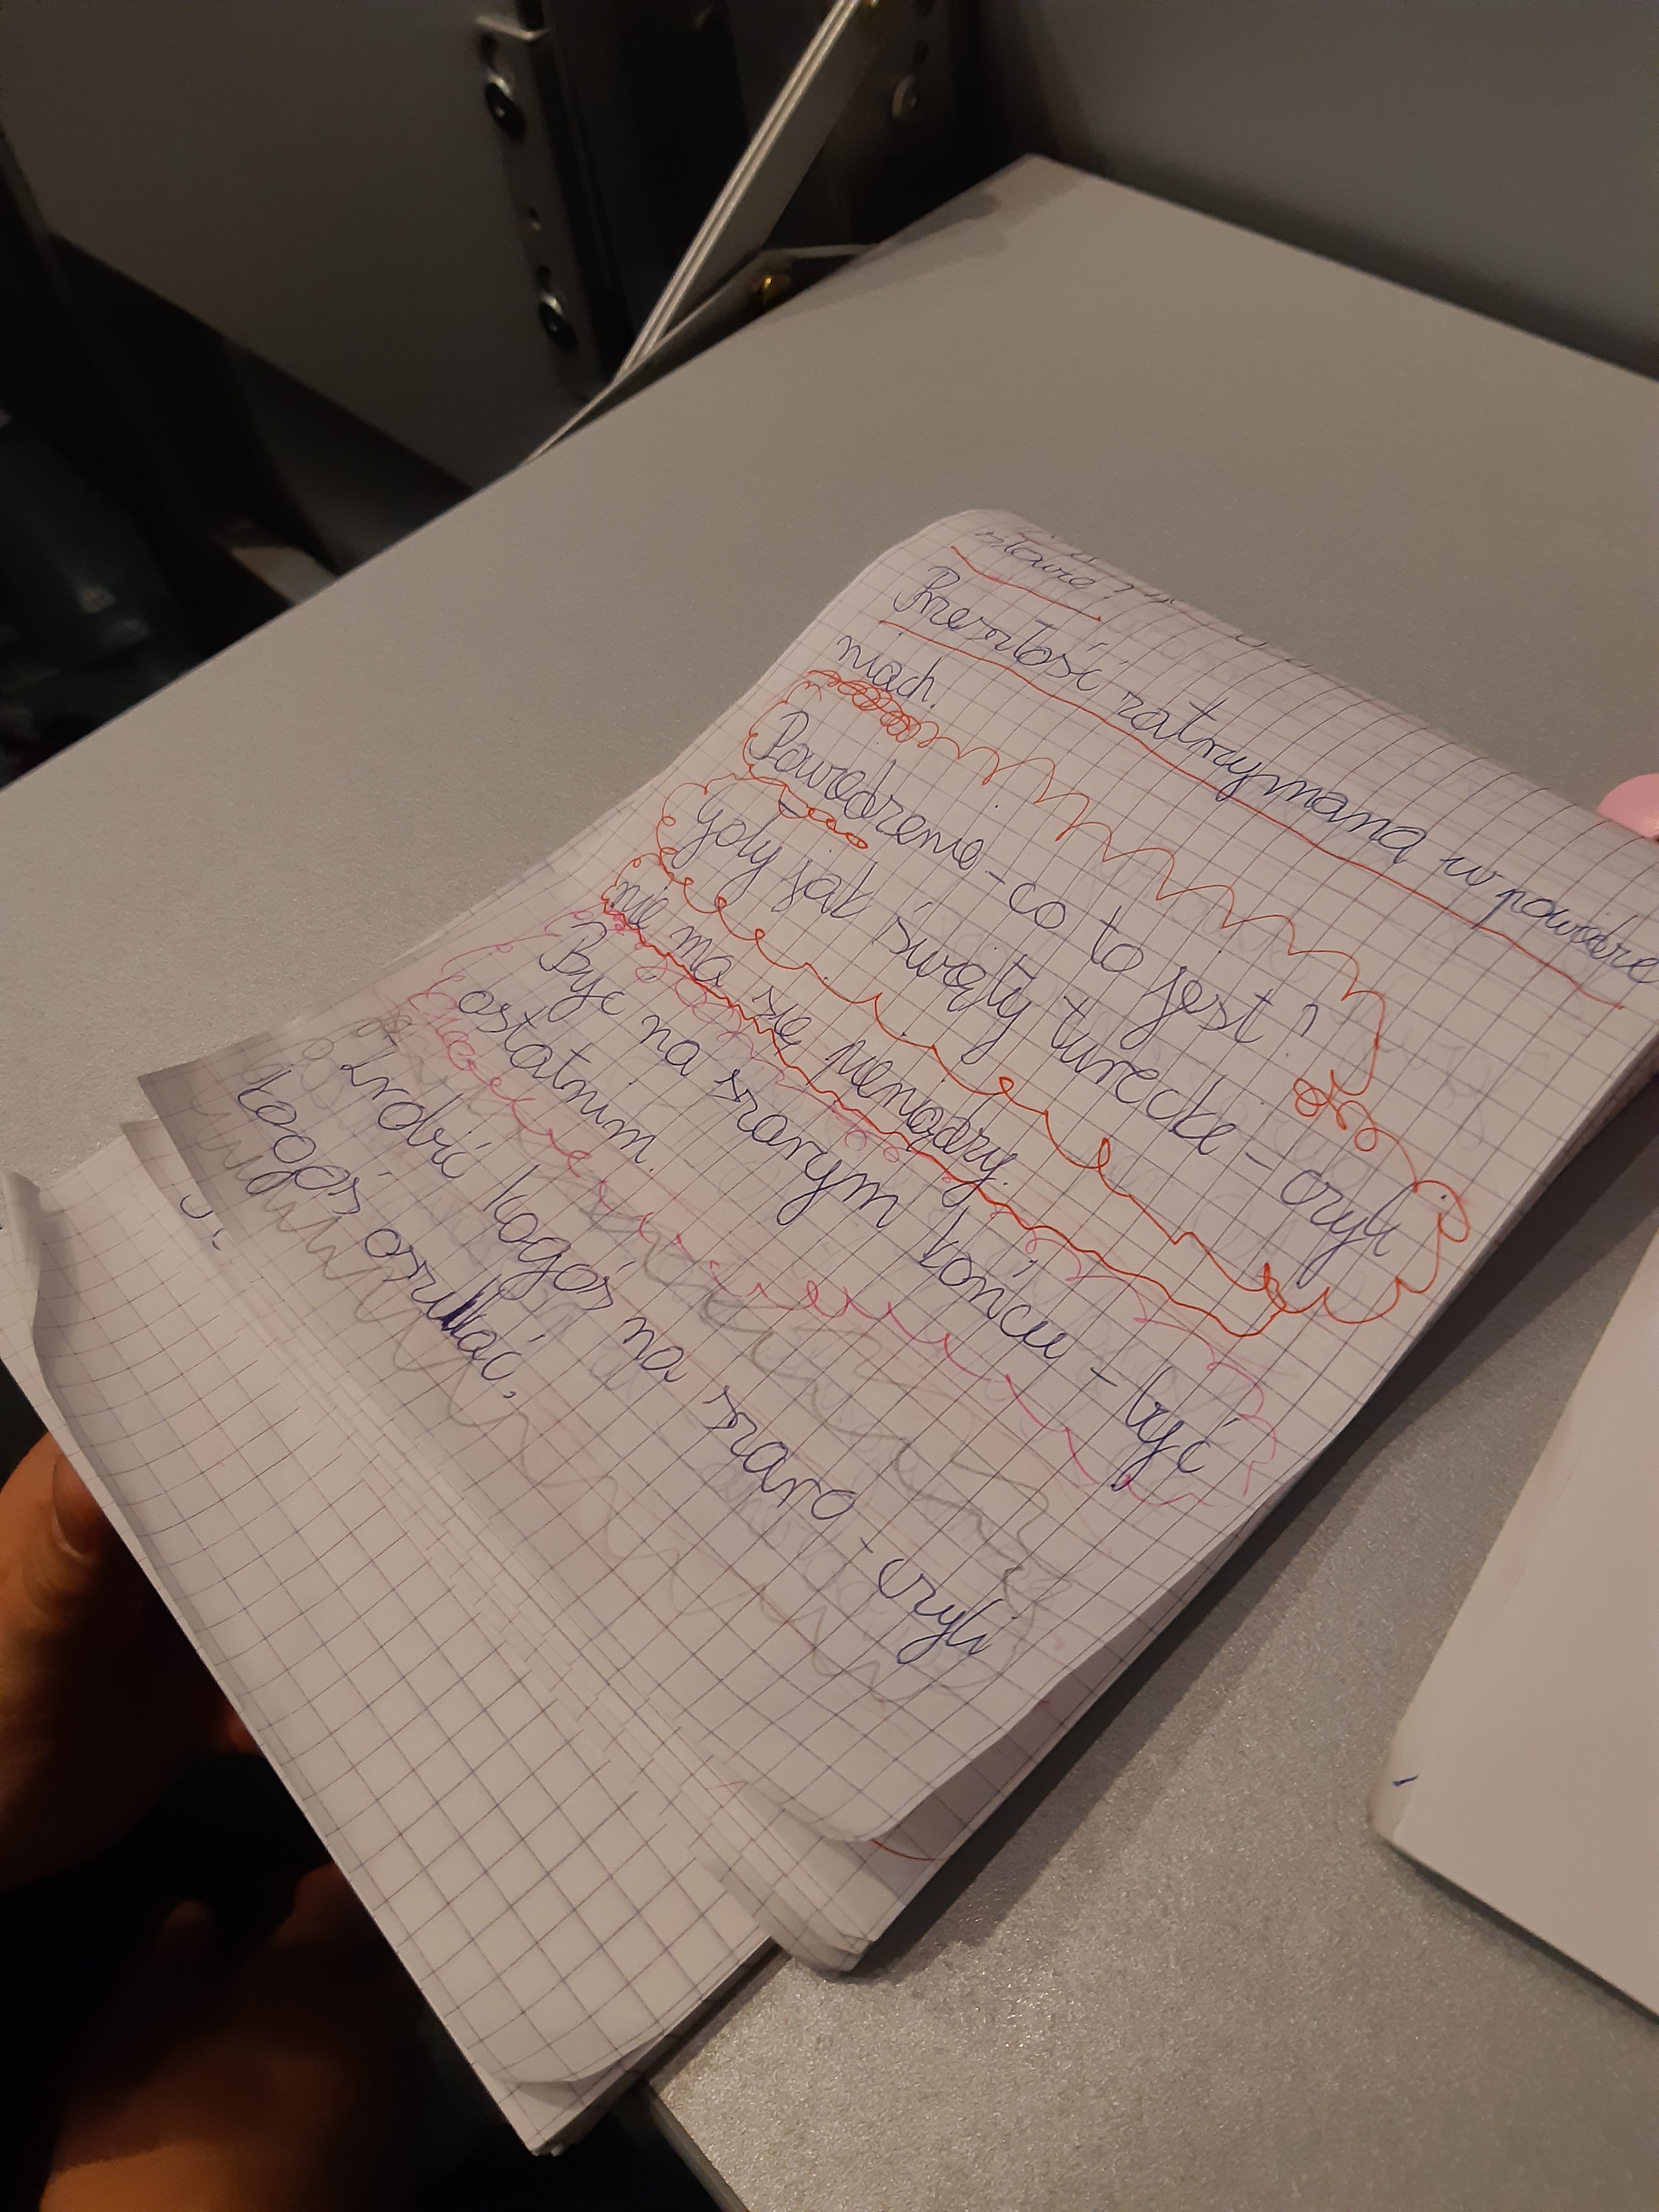 Przeszłość zatrzymana w powiedze
niach.
Powiedzenie - co to jest?
goły jak święty turecki - czyli
nie ma się pieniędzy.
Być na szarym końcu - być
ostatnim.
Zrobić kogoś na szaro - czyli
kogoś oszukać.